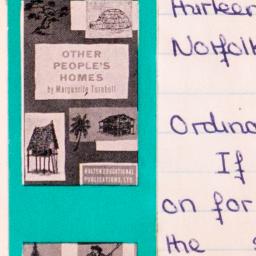 OTHER
PEOPLE'S
HOMES
by Marguerite Turnbull
HULTON EDUCATIONAL
PUBLICATIONS, LTD.
Norfolk
If
on for
the